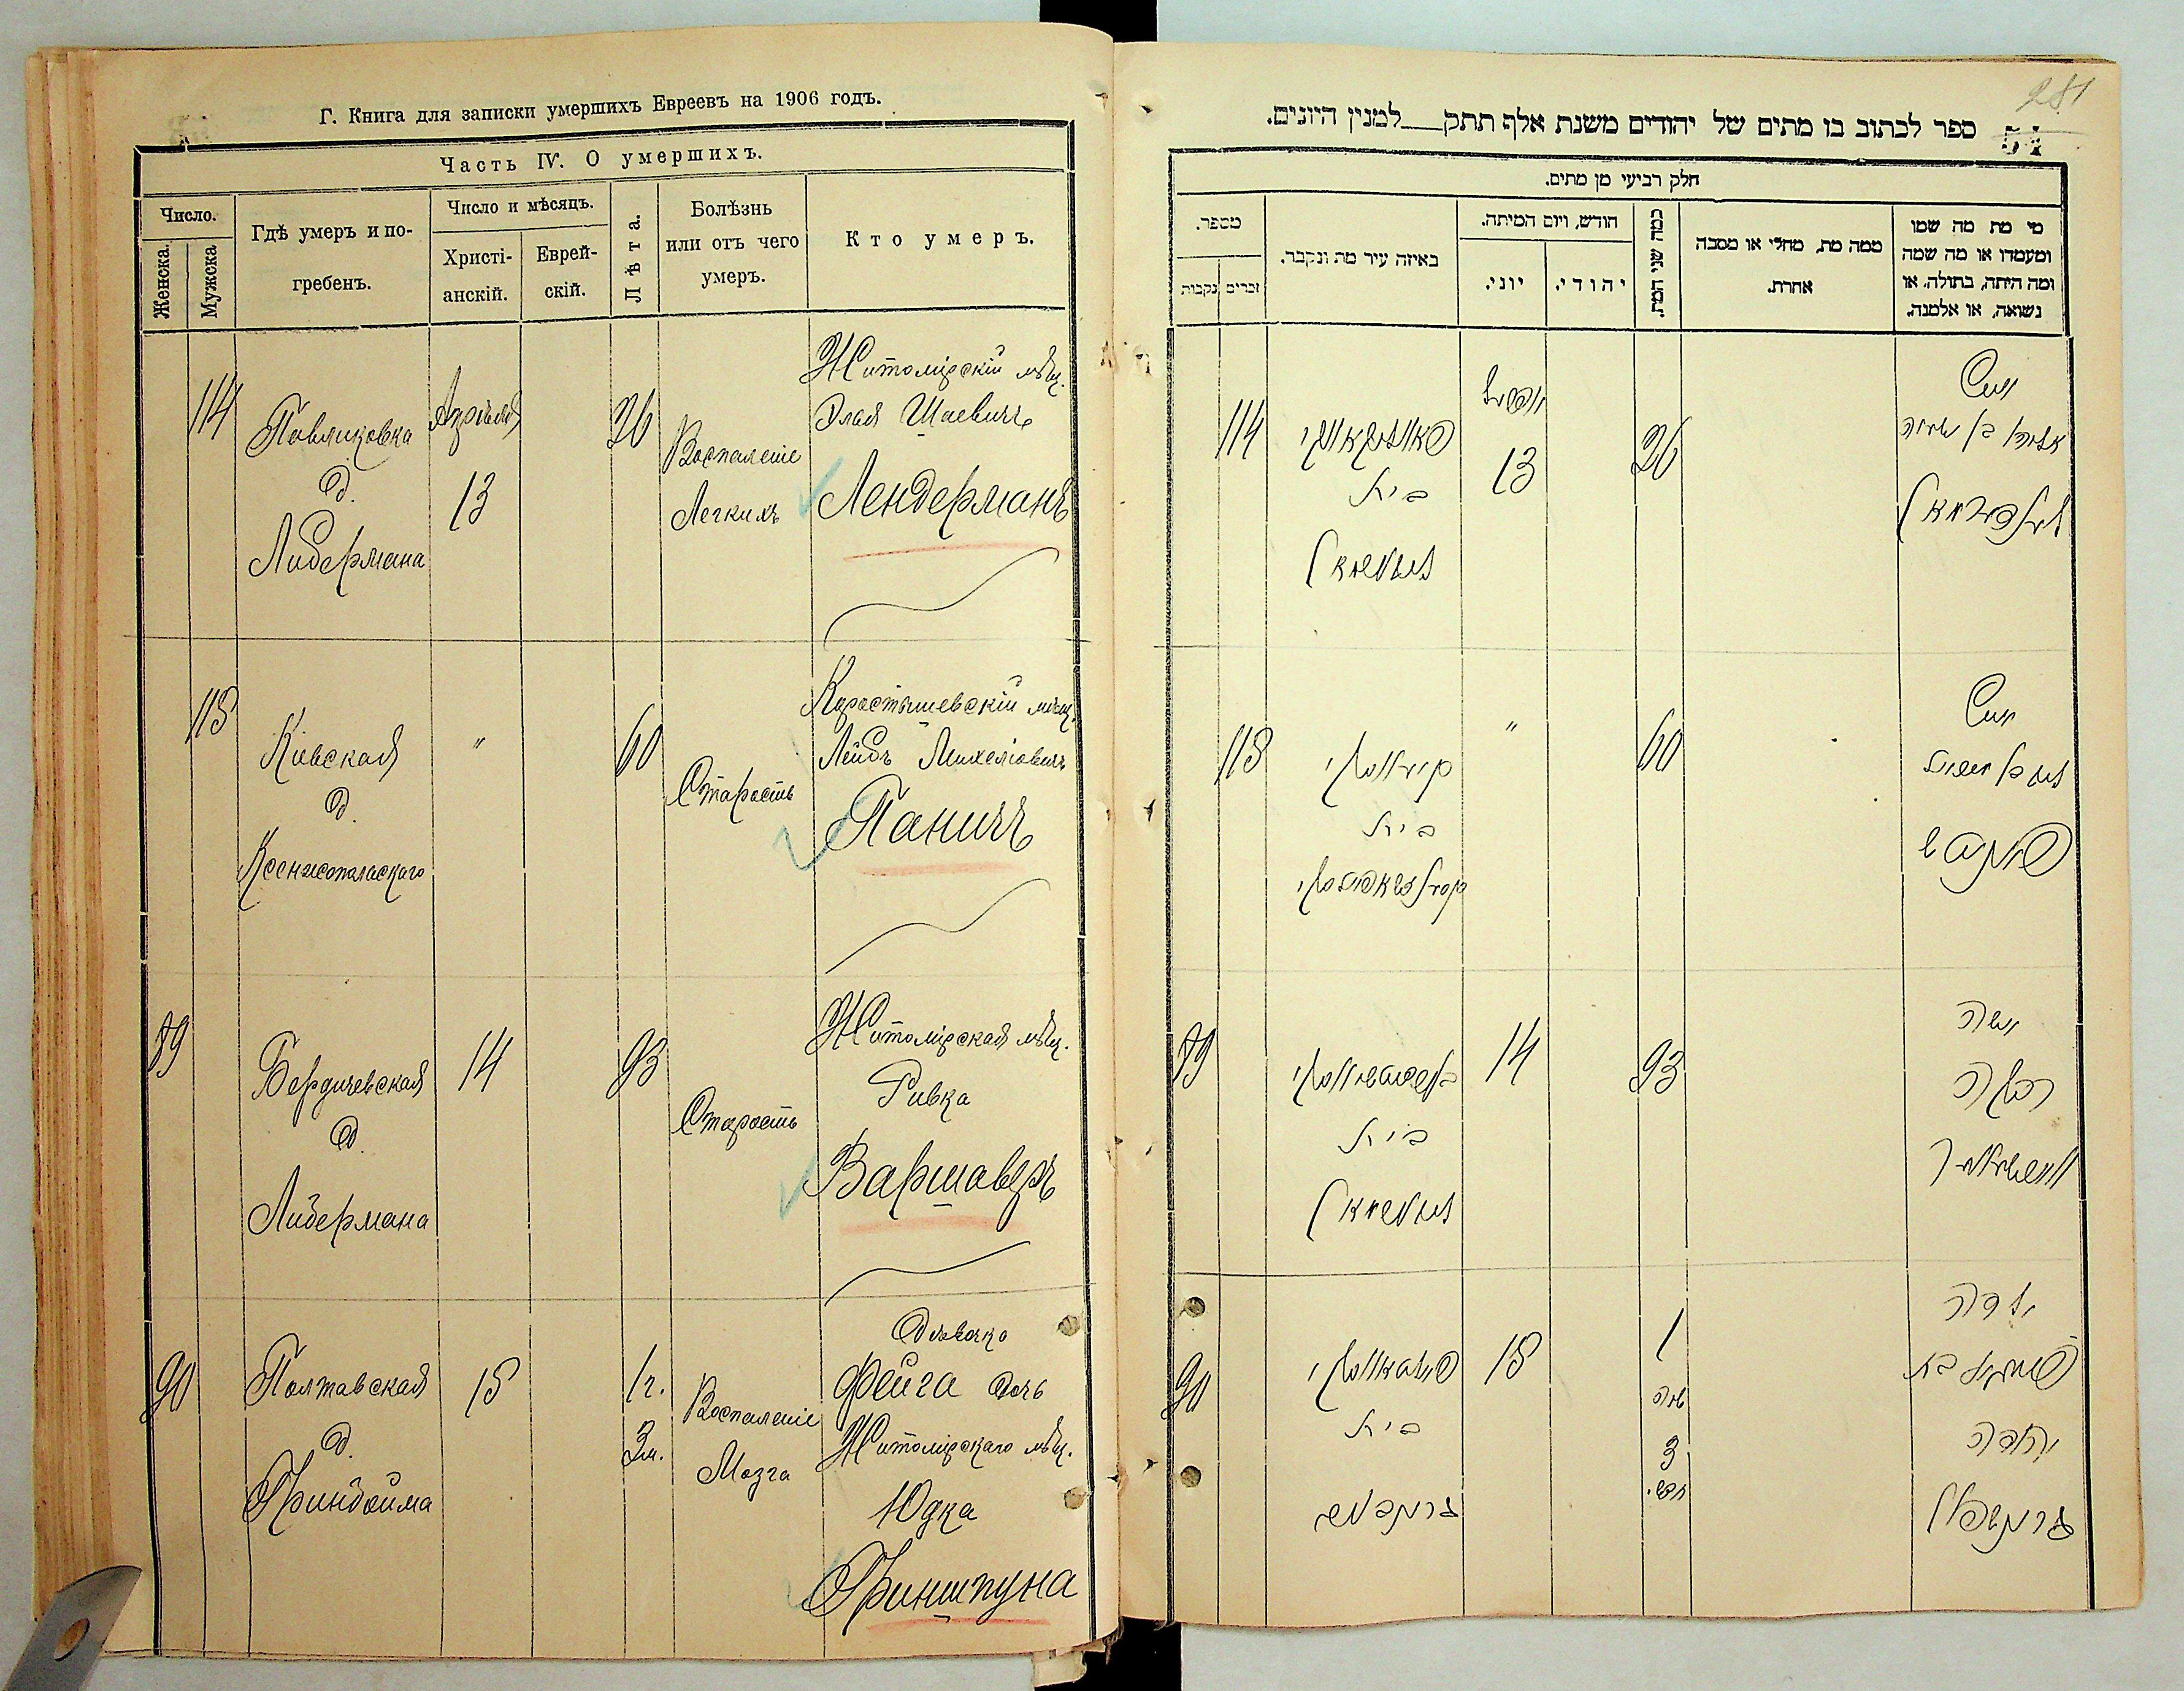 Г. Книга для записки умершихъ Евреевъ на 1906 годъ.
Часть IV. О умершихъ.
Число.
Женска.
Мужска
Гдѣ умеръ и по-
гребенъ.
Число и мѣсяцъ.
Христі-
анскій.
Еврей-
скій.
Лѣта.
Болѣзнь
или отъ чего
умеръ.
Кто умеръ.
114
Павликовка
д.
Либермана
Апрѣля
13
26
Воспаленіе
Легкихъ
Житомірскій мѣщ.
Элья Шаевичъ
Лендерманъ
115
Кіевская
д.
"
60
Старость
Коростышевскій мѣщ.
Лейбъ Михелювичъ
Паничъ
89
Бердичевская
д.
Либермана
14
93
Старость
Житомірская мѣщ.
Ривка
Варшаверъ
90
Полтавская
д.
Гринбойма
15
1 г.
3 м.
Воспаленіе
Мозга
Дѣвочка
Фейга дочь
Житомірскаго мѣщ.
Юдка
Гриншпуна
281
51
ספר לכתוב בו מתים של יהודים משנת אלף תתק למנין היונים.
חלק רביעי מן מתים.
מספר.
נקבות
זכרים
באיזה עיר מת ונקבר.
חודש, ויום המיתה.
יוני.
יהודי.
כמה שני המת.
ממה מת, מחלי או מסבה
אחרת.
מי מת מה שמו
ומעמדו או מה שמה
ומה היתה, בתולה, או
נשואה, או אלמנה.
114
בית
ליבערמאן
אפריל
13
26
איש
לענדערמאן
115
קיעווסקי
בית
"
60
איש
89
בית
ליבערמאן
14
93
אשה
רבקה
ווארשאווער
90
פאלטאווסקי
בית
גרינבוים
15
1
שנה
3
חדשי'
ילדה
יהודה
גרינשפון